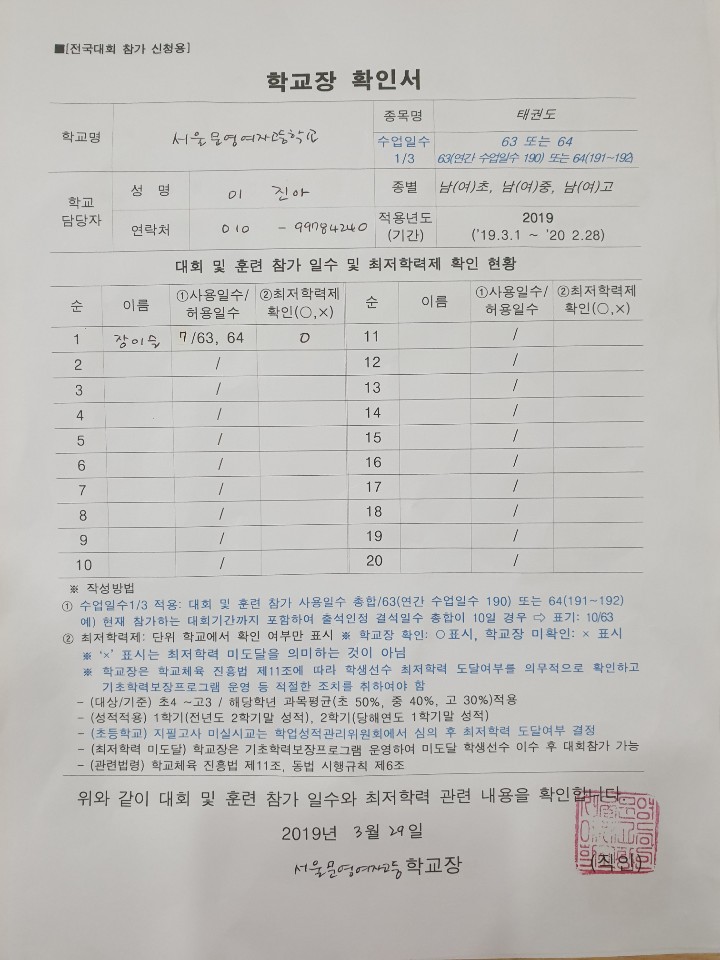 ■[전국대회 참가 신청용]
학교장 확인서
학교명 서울문영여자고등학교 종목명 태권도
수업일수 1/3 63 또는 64
63(연간 수업일수 190) 또는 64(191~192)
학교 담당자 성 명 이 진아 종별 남(여)초, 남(여)중, 남(여)고
연락처 010 - 99784240 적용년도 (기간) 2019
('19.3.1 ~ '20 2.28)
대회 및 훈련 참가 일수 및 최저학력제 확인 현황
순 이름 ①사용일수/허용일수 ②최저학력제 확인(○,×) 순 이름 ①사용일수/허용일수 ②최저학력제 확인(○,×)
1 장이슬 7/63, 64 O 11 /
2 / 12 /
3 / 13 /
4 / 14 /
5 / 15 /
6 / 16 /
7 / 17 /
8 / 18 /
9 / 19 /
10 / 20 /
※ 작성방법
① 수업일수1/3 적용: 대회 및 훈련 참가 사용일수 총합/63(연간 수업일수 190) 또는 64(191~192)
예) 현재 참가하는 대회기간까지 포함하여 출석인정 결석일수 총합이 10일 경우 ⇨ 표기: 10/63
② 최저학력제: 단위 학교에서 확인 여부만 표시 ※ 학교장 확인: ○표시, 학교장 미확인: × 표시
※ '×' 표시는 최저학력 미도달을 의미하는 것이 아님
※ 학교장은 학교체육 진흥법 제11조에 따라 학생선수 최저학력 도달여부를 의무적으로 확인하고
기초학력보장프로그램 운영 등 적절한 조치를 취하여야 함
- (대상/기준) 초4 ~고3 / 해당학년 과목평균(초 50%, 중 40%, 고 30%)적용
- (성적적용) 1학기(전년도 2학기말 성적), 2학기(당해연도 1학기말 성적)
- (초등학교) 지필고사 미실시교는 학업성적관리위원회에서 심의 후 최저학력 도달여부 결정
- (최저학력 미도달) 학교장은 기초학력보장프로그램 운영하여 미도달 학생선수 이수 후 대회참가 가능
- (관련법령) 학교체육 진흥법 제11조, 동법 시행규칙 제6조
위와 같이 대회 및 훈련 참가 일수와 최저학력 관련 내용을 확인합니다.
2019년 3월 29일
서울문영여자고등학교장 (직인)